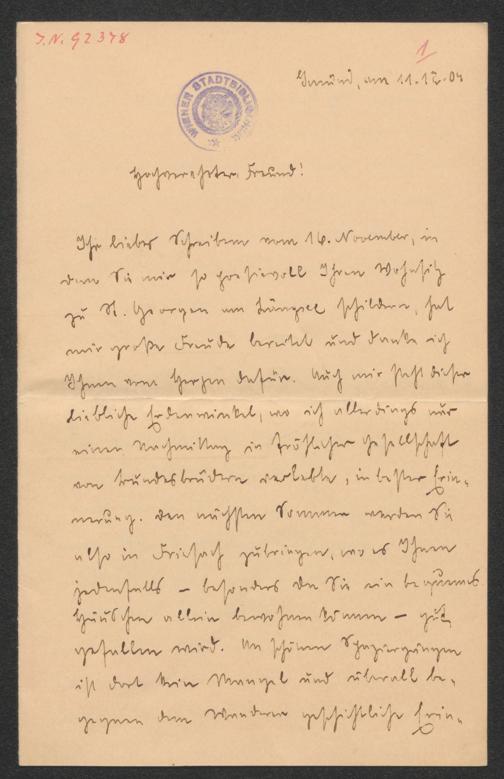 J.N. 92378
1
WIENER STADTBIBLIOTHEK
Gmünd, am 11.12.04
Hochverehrter Freund!
Ihr liebes Schreiben vom 16. November, in
dem Sie mir so poesievoll Ihren Wohnsitz
zu St. Georgen am Längsee schildern, hat
mir große Freude bereitet und danke ich
Ihnen vom Herzen dafür. Auch mir steht dieser
liebliche Erdenwinkel, wo ich allerdings nur
einen Nachmittag in fröhlicher Gesellschaft
von Bundesbrüdern verlebte, in bester Erin-
nerung. Den nächsten Sommer werden Sie
also in Friesach zubringen, wo es Ihnen
jedenfalls – besonders da Sie ein bequemes
Häuschen allein bewohnen können – gut
gefallen wird. An schönen Spaziergängen
ist dort kein Mangel und überall be-
gegnen dem Wanderer geschichtliche Erin-